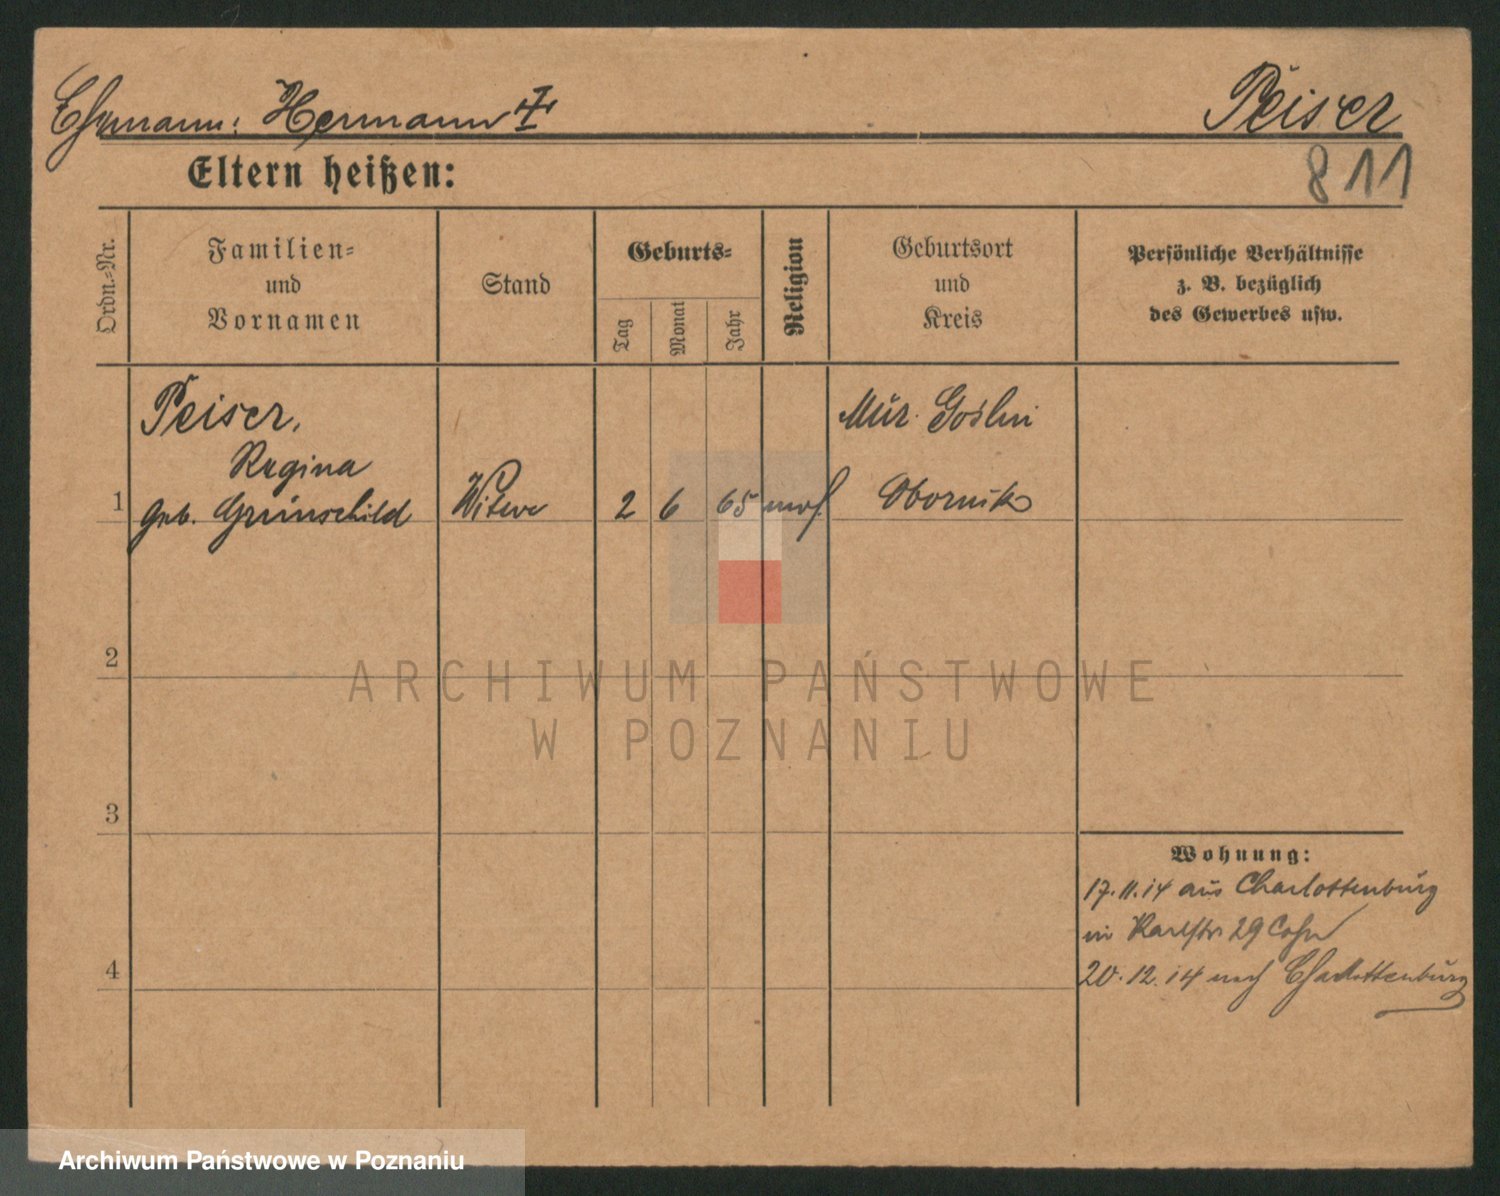 Ehemann: Hermann ‡
Peiser
811
Eltern heißen:
Ordn.-Nr.
Familien-
und
Vornamen
Stand
Geburts-
Tag
Monat
Jahr
Religion
Geburtsort
und
Kreis
Persönliche Verhältnisse
z. B. bezüglich
des Gewerbes usw.
Peiser,
Regina
1 geb. Grünschild Witwe 2 6 65 mos.
Mur. Goslin
Obornik
2
ARCHIWUM PAŃSTWOWE
W POZNANIU
3
Wohnung:
17.11.14 aus Charlottenburg
in Karlstr 29 Cohn
4
20.12.14 nach Charlottenburg
Archiwum Państwowe w Poznaniu